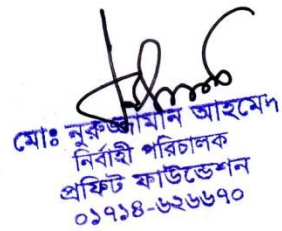 মোঃ নুরুজ্জামান আহমেদ
নির্বাহী পরিচালক
প্রফিট ফাউন্ডেশন
০১৭১৪-৬২৬৬৭০